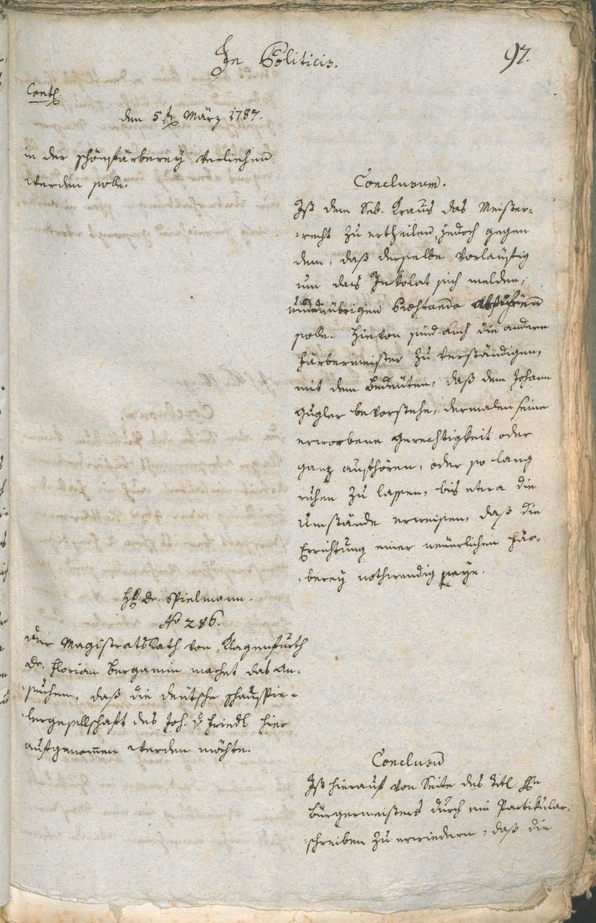 In Politicis.
97.
Cont.
den 5t. März 1787.
in der schönfärberey verliehen
werden solle.
Conclusum.
Ist dem Seb. Kraus das Meister-
recht zu ertheilen, jedoch gegen
dem, daß derselbe vorläufig
um das Inkolat sich melden,
übrigen
solle. Hievon sind auch die andern
Färbermeister zu verständigen,
mit dem Bedeuten, daß dem Johann
Gugler bevorstehe, dermalen seine
erworbene Gerechtigkeit oder
ganz aufhören, oder so lang
ruhen zu lassen, bis etwa die
Umstände erweisen, daß die
Errichtung einer neuerlichen Fär-
berey nothwendig seye.
H. v. Spielmann.
No 286.
Der Magistratsrath von Klagenfurth
Florian Bergamin machet das An-
suchen, daß die deutsche Schauspie-
lergesellschaft des Joh. Friedl hier
aufgenommen werden möchte.
Conclusum
Ist hierauf von Seite des Titl Hn
Bürgermeisters durch ein Partikular-
schreiben zu erwiedern, daß die